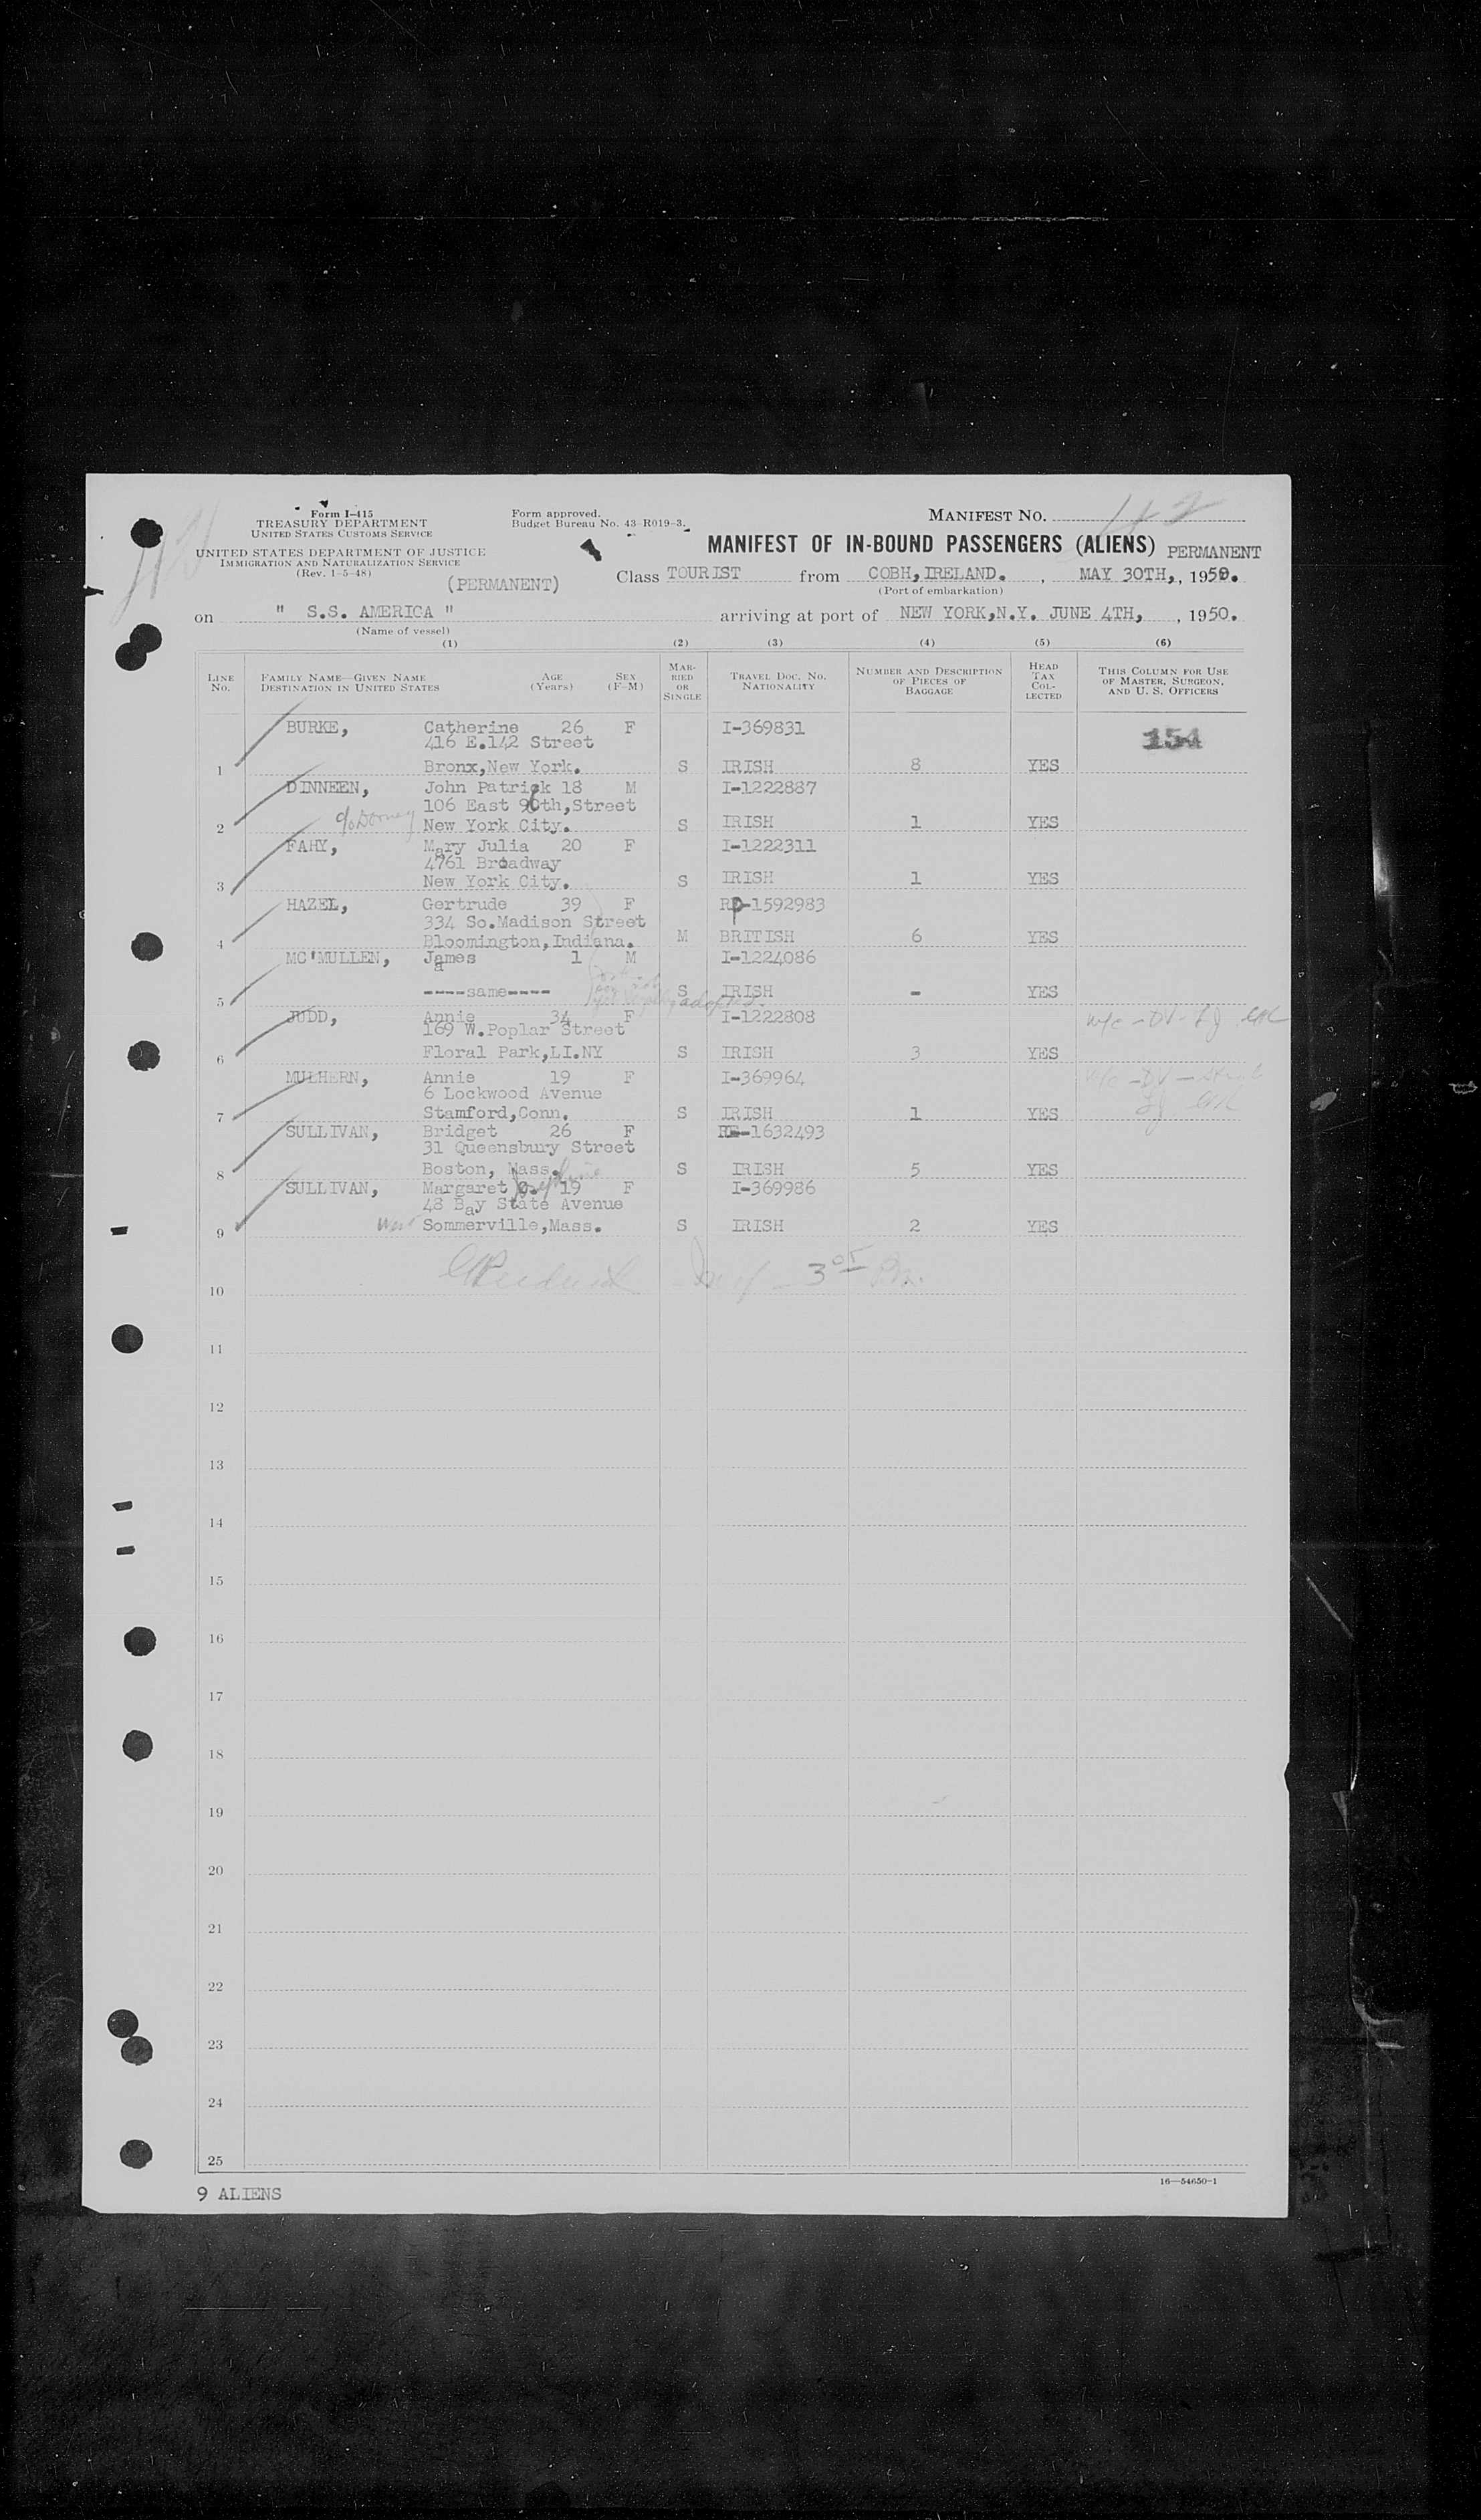 Form I-415
TREASURY DEPARTMENT
UNITED STATES CUSTOMS SERVICE
UNITED STATES DEPARTMENT OF JUSTICE
IMMIGRATION AND NATURALIZATION SERVICE
(Rev. 1-5-48)
(PERMANENT)
Form approved.
Budget Bureau No. 43-R019-3.
MANIFEST NO. 42
MANIFEST OF IN-BOUND PASSENGERS (ALIENS) PERMANENT
Class TOURIST from COBH, IRELAND. , MAY 30TH, , 1950.
(Port of embarkation)
on " S.S. AMERICA " arriving at port of NEW YORK,N.Y. JUNE 4TH, , 1950.
(Name of vessel)
(1) (2) (3) (4) (5) (6)
LINE NO. FAMILY NAME—GIVEN NAME DESTINATION IN UNITED STATES AGE (Years) SEX (F-M) MARRIED OR SINGLE TRAVEL DOC. NO. NATIONALITY NUMBER AND DESCRIPTION OF PIECES OF BAGGAGE HEAD TAX COLLECTED THIS COLUMN FOR USE OF MASTER, SURGEON, AND U. S. OFFICERS
BURKE, Catherine 26 F I-369831 154
416 E.142 Street
1 Bronx,New York. S IRISH 8 YES
DINNEEN, John Patrick 18 M I-1222887
106 East 96th,Street
2 c/o New York City. S IRISH 1 YES
FAHY, Mary Julia 20 F I-1222311
4761 Broadway
3 New York City. S IRISH 1 YES
HAZEL, Gertrude 39 F RP-1592983
334 So.Madison Street
4 Bloomington,Indiana. M BRITISH 6 YES
MC'MULLEN, James 1 M I-1224086
5 ----same---- S IRISH - YES
adopted.
JUDD, Annie 34 F I-1222808
169 W.Poplar Street
6 Floral Park,LI.NY S IRISH 3 YES
MULHERN, Annie 19 F I-369964
6 Lockwood Avenue
7 Stamford,Conn. S IRISH 1 YES
SULLIVAN, Bridget 26 F RE-1632493
31 Queensbury Street
8 Boston, Mass. S IRISH 5 YES
SULLIVAN, Margaret Josephine 19 F I-369986
48 Bay State Avenue
9 Sommerville,Mass. S IRISH 2 YES
10
11
12
13
14
15
16
17
18
19
20
21
22
23
24
25
9 ALIENS
16—54650-1